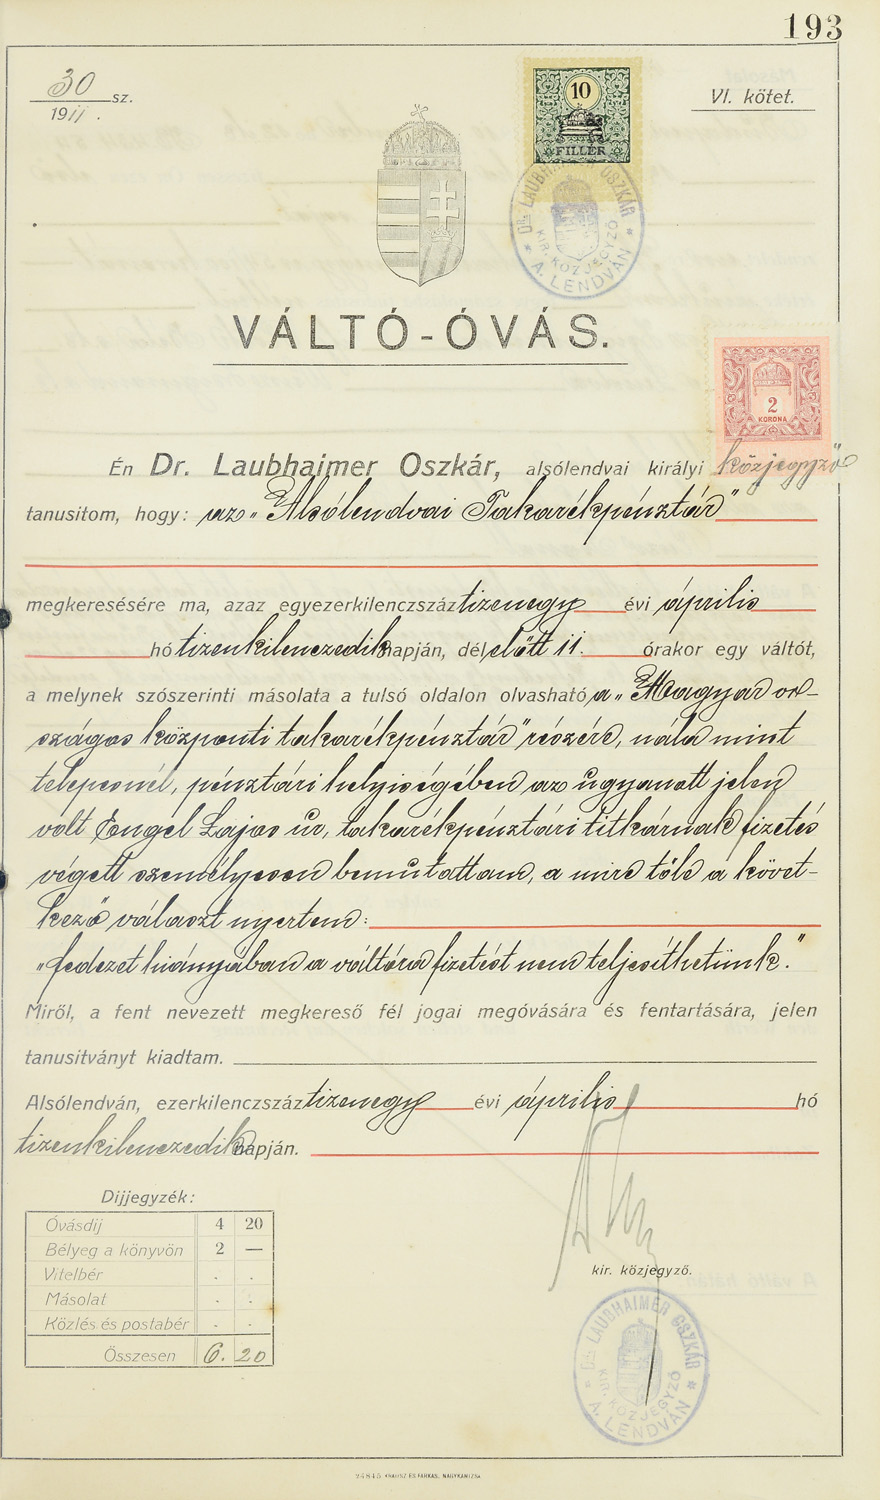 193
30 sz.
1911.
VI. kötet.
10
FILLÉR
DR. LAUBHAIMER OSZKÁR
KIR. KÖZJEGYZŐ
* A. LENDVÁN *
VÁLTÓ-ÓVÁS.
2
KORONA
Én Dr. Laubhaimer Oszkár, alsólendvai királyi közjegyző
tanusitom, hogy: az „Alsólendvai Takarékpénztár"
megkeresésére ma, azaz egyezerkilenczszáz tizenegy évi április
hó tizenkilenczedik napján, dél előtt 11. órakor egy váltót,
a melynek szószerinti másolata a tulsó oldalon olvasható, a „Magyar or-
szágos központi takarékpénztár" részére, nála mint
telepesnél, pénztári helyiségében az ugyanott jelen
volt Engel Lajos úr, takarékpénztári titkárnak fizetés
végett személyesen bemutattam, a mire tőle a követ-
kező választ nyertem:
„fedezet hiányában a váltóra fizetést nem teljesíthetünk."
Miről, a fent nevezett megkereső fél jogai megóvására és fentartására, jelen
tanusitványt kiadtam.
Alsólendván, ezerkilenczszáz tizenegy évi április hó
tizenkilenczedik napján.
Dijjegyzék:
Óvásdij 4 20
Bélyeg a könyvön 2 —
Vitelbér . .
Másolat . .
Közlés és postabér . .
Összesen 6. 20
kir. közjegyző.
DR. LAUBHAIMER OSZKÁR
KIR. KÖZJEGYZŐ
* A. LENDVÁN *
24845 KRAUSZ ÉS FARKAS, NAGYKANIZSA